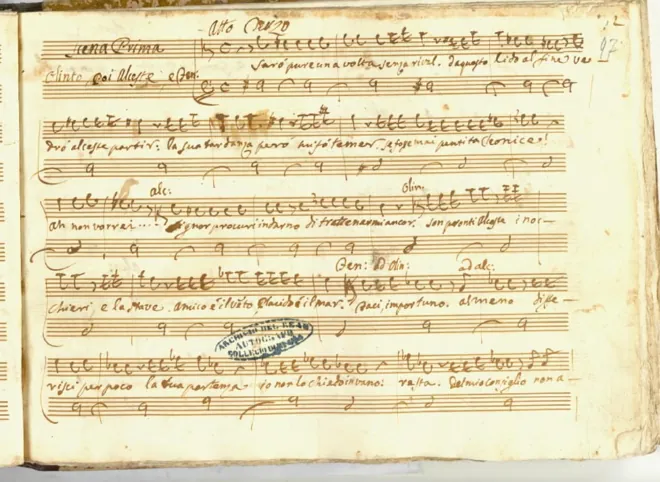 Atto Terzo
Scena Prima
Olinto poi Alceste, e Fen:
Sarò pure una volta senza rival. da questo lido al fine ve
drò alceste partir. la sua tardanza però mi fà temer. se fosse mai pentita Cleonice!
alc: Olin:
ah non vorrei.... Signor procuri indarno di trattenermi ancor. Son pronti Alceste i noc-
Fen: ad Olin: ad alc:
chieri, e la Nave. amico è il vento, Placido è il mar. Taci, importuno. almeno diffe-
risci per poco la tua partenza. io non lo chiedo invano: resta. del mio consiglio non a-
ARCHIVIO DEL REAL
COLLEGIO DI MUSICA
97